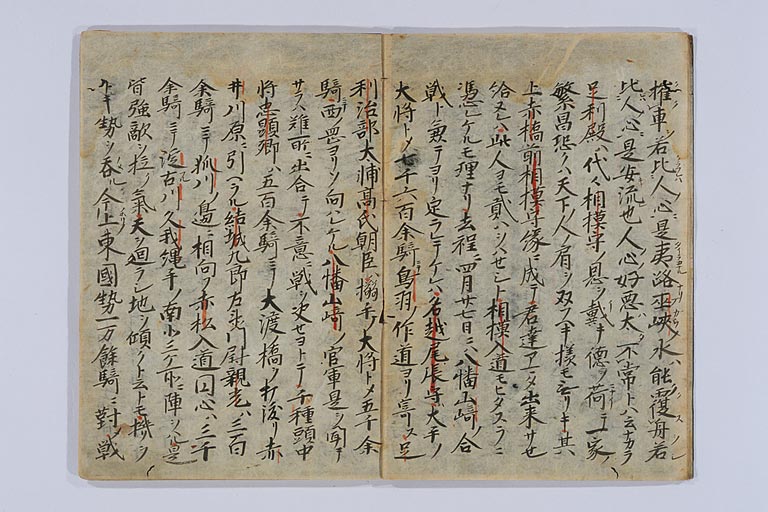 摧車若比人心是夷路巫峡水ハ能覆舟若
比人心是安流也人心好悪太不常トハ云ナカラ
足利殿ハ代々相模守ノ恩ヲ戴キ徳ヲ荷テ一家ノ
繁昌恐クハ天下ノ人肩ヲ双フヘキ様モ無リキ其上
上赤橋前相模守ノ縁ニ成テ君達アマタ出来サセ
給ヌレハ此人ヨモ貳ハヲハセシト相模入道モヒタスラニ
憑レケルモ理ナリ去程ニ四月廿七日ニハ八幡山崎ノ合
戦ト兼テヨリ定ラレテケレハ名越尾張守大手ノ
大将トメ七千六百余騎鳥羽ノ作道ヨリ寄ス足
利治部大輔高氏朝臣ハ搦手ノ大将トメ五千余
騎西岡ヨリソ向ハレケル八幡山崎ノ官軍是ヲ聞テ
サラハ難所ニ出合テ不意ニ戦ヲ決セヨトテ千種頭中
将忠顕卿ハ五百余騎ニテ大渡ノ橋ヲ打渡リ赤
井川原ニ引ヘラル結城九郎左衛門尉親光ハ三百
余騎ニテ狐川ノ邊ニ相向フ赤松入道円心ハ三千
余騎ニテ淀古川久我縄手ノ南北三ケ所ニ陣ヲ取是
皆強敵ヲ拉ク氣天ヲ廻ラシ地ヲ傾クト云トモ機ヲ
トキ勢ヲ呑ル今上東國勢一万餘騎ニ對ノ戦